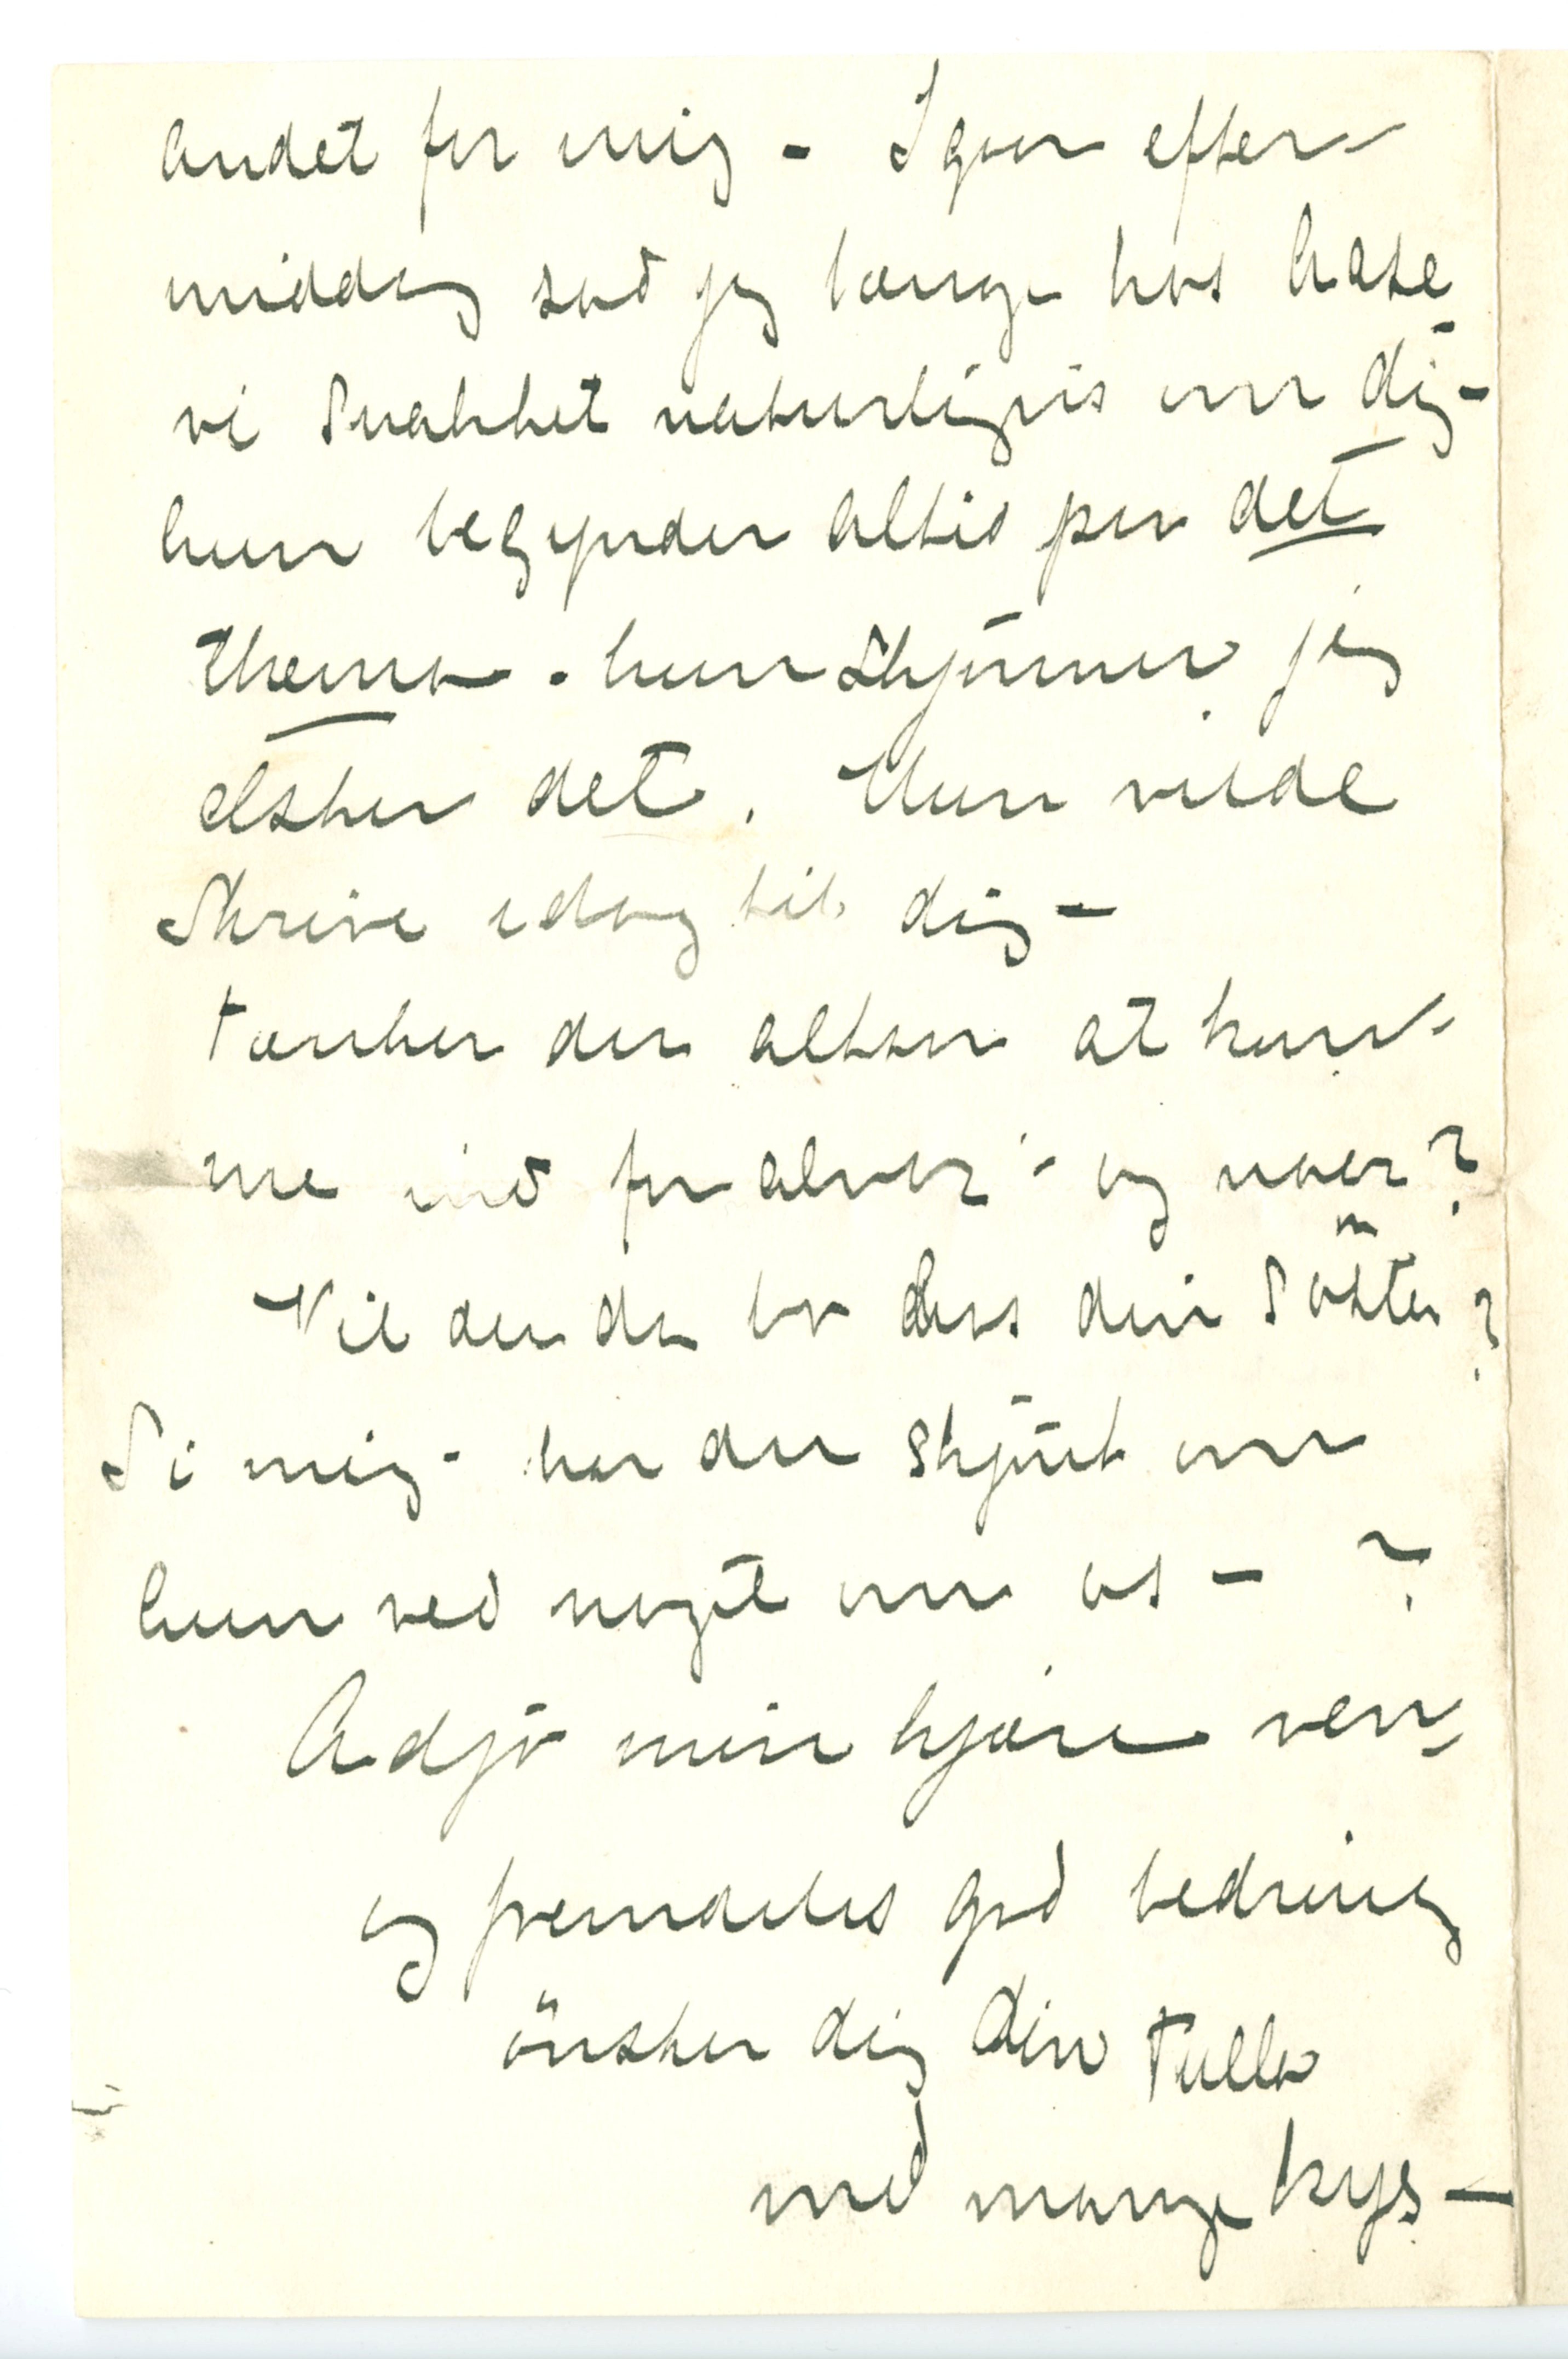 andet for mig – Igaar efter-
middag sad jeg længe hos Aase
vi snakket naturligvis om dig –
hun begynder altid paa det
thema – hun skjønner jeg
elsker det. Hun vilde
skrive idag til dig –
tænker du altsaa at kom-
me ind for alvor – og naar?
Vil du da bo hos din søster?
Si mig – har du skjønt om
hun ved noget om os – ?
Adjø min kjære ven –
og fremdeles god bedring
ønsker dig din Tulla
med mange kys –